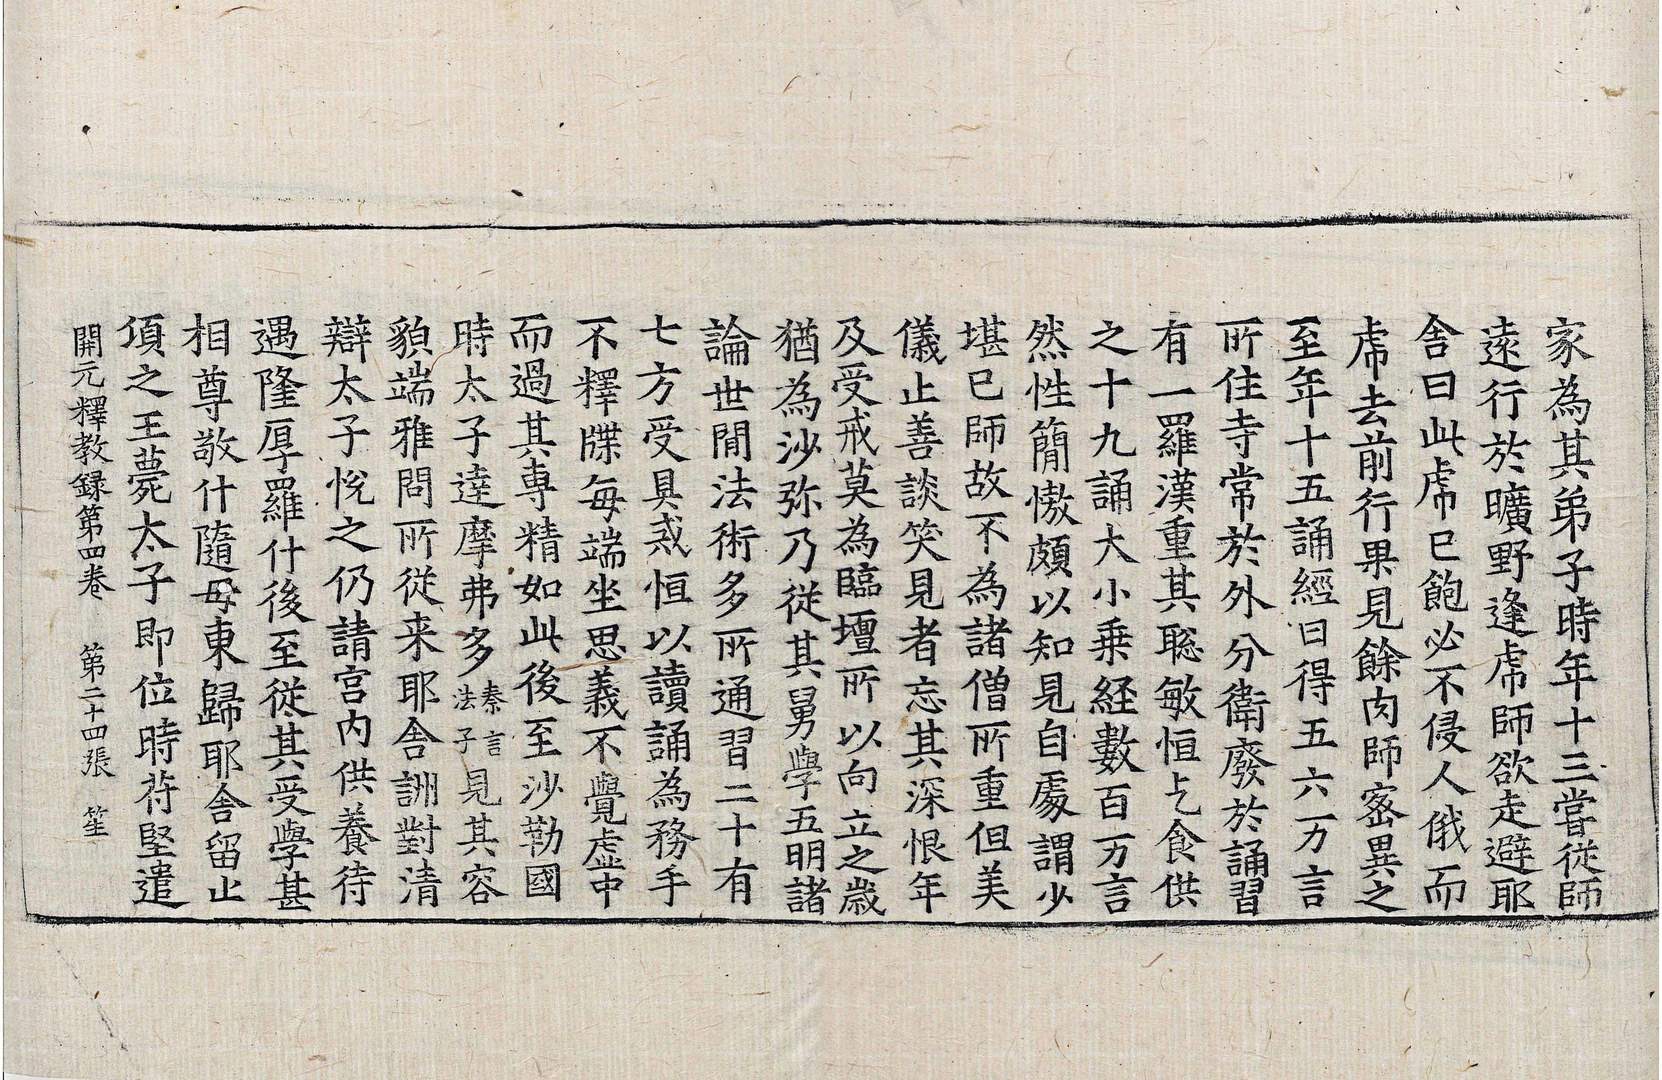 家為其弟子時年十三嘗從師
遠行於曠野逢虎師欲走避耶
舍曰此虎已飽必不侵人俄而
虎去前行果見餘肉師密異之
至年十五誦經日得五六万言
所住寺常於外分衛廢於誦習
有一羅漢重其聡敏恒乞食供
之十九誦大小乗経數百万言
然性簡慠頗以知見自處謂少
堪已師故不為諸僧所重但美
儀止善談笑見者忘其深恨年
及受戒莫為臨壇所以向立之歲
猶為沙弥乃從其舅學五明諸
論世間法術多所通習二十有
七方受具戒恒以讀誦為務手
不釋牒每端坐思義不覺虛中
而過其專精如此後至沙勒國
時太子達摩弗多秦言法子見其容
貌端雅問所從来耶舍詶對清
辯太子悅之仍請宮内供養待
遇隆厚羅什後至從其受學甚
相尊敬什隨母東歸耶舍留止
項之王薨太子即位時苻堅遣
開元釋教録第四卷 第二十四張 笙